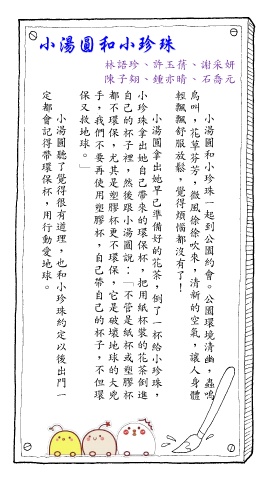 小湯圓和小珍珠
林語珍、許玉蒨、謝采妍
陳子翔、鍾亦晴、石喬元
小湯圓和小珍珠一起到公園約會。公園環境清幽，蟲鳴
鳥叫，花草芬芳，微風徐徐吹來，清新的空氣，讓人身體
輕飄飄舒服放鬆，覺得煩惱都沒有了！
小湯圓拿出她早已準備好的花茶，倒了一杯給小珍珠，
小珍珠拿出她自己帶來的環保杯，把用紙杯裝的花茶倒進
自己的杯子裡，然後跟小湯圓說：「不管是紙杯或塑膠杯
都不環保，尤其是塑膠杯更不環保，它是破壞地球的大兇
手，我們不要再使用塑膠杯，自己帶自己的杯子，不但環
保又救地球。」
小湯圓聽了覺得很有道理，也和小珍珠約定以後出門一
定都會記得帶環保杯，用行動愛地球。